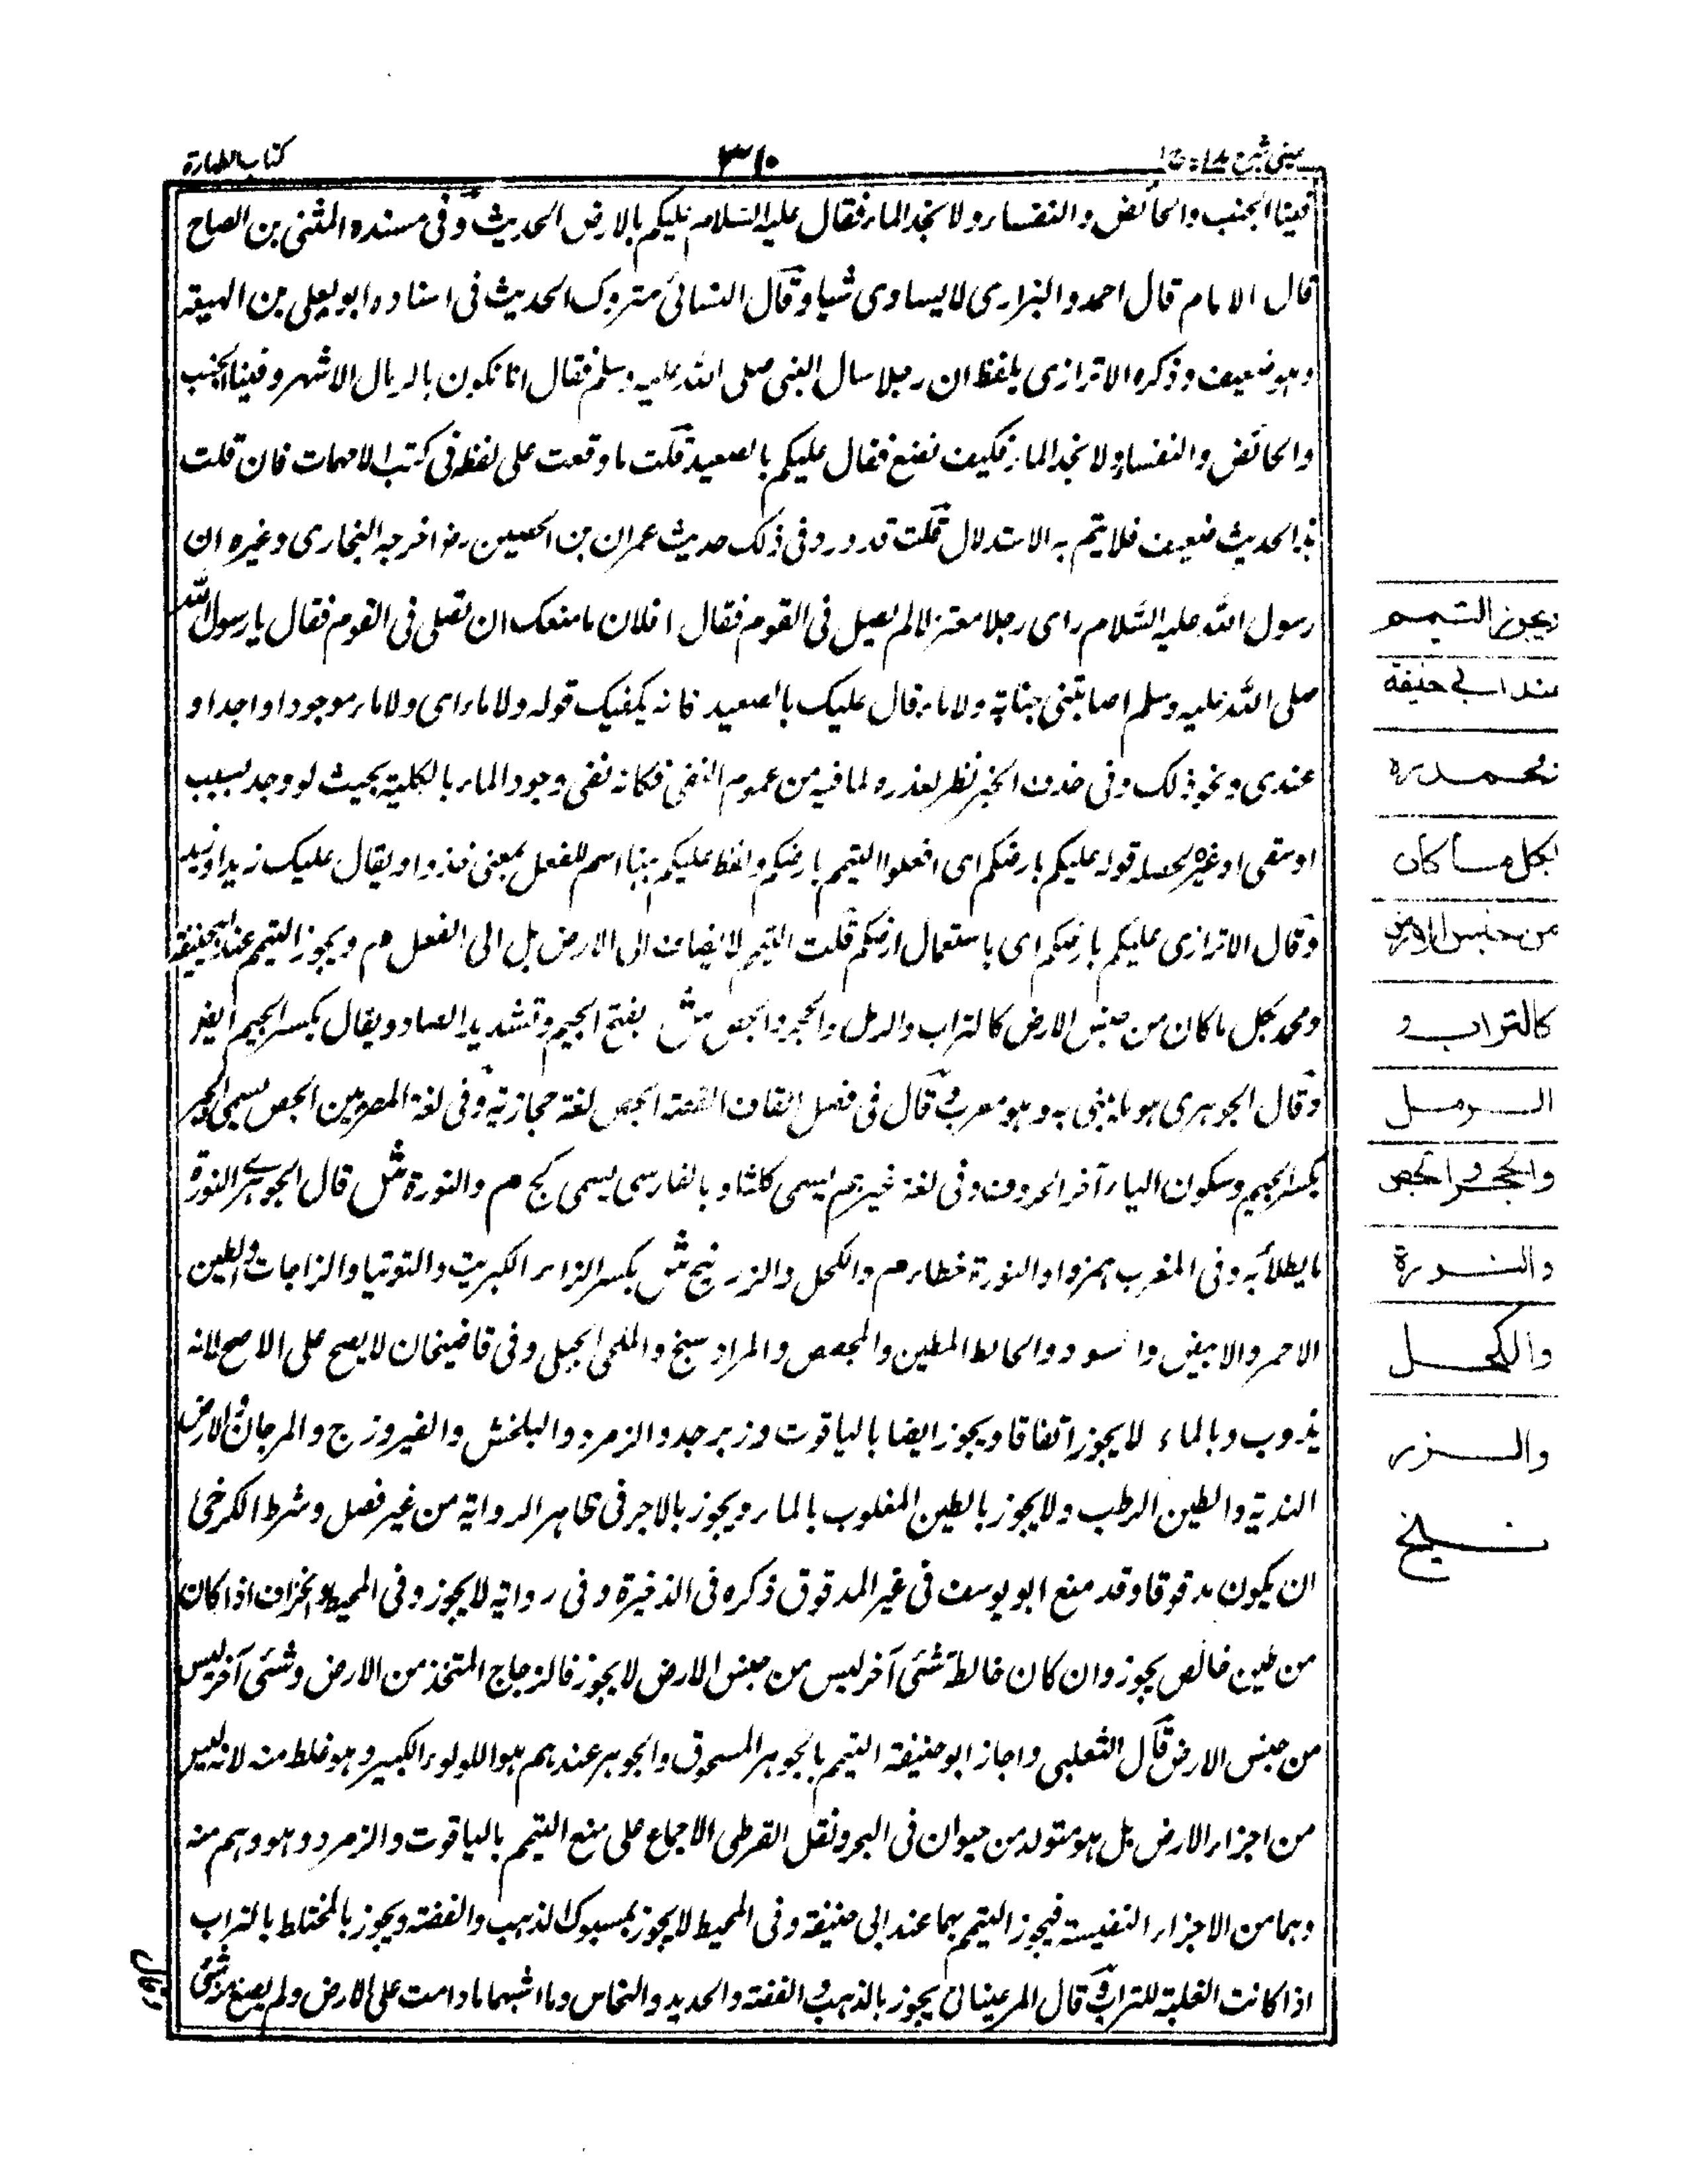 عینی شرح ھدایہ
٣١٠
كتاب الطهارة
فینا الجنب والحائض والنفساء ولا نجد الماء فقال علیه السلام علیکم بالارض الحدیث وفی مسنده المثنی بن الصباح
قال الامام قال احمد والبزاری لایساوی شیا وقال النسائی متروک الحدیث فی اسناده ابو یعلی بن الهیعة
وهو ضعیف وذکره الاترازی بلفظ ان رجلا سال النبی صلی الله علیه وسلم فقال انا نکون بالرمال الاشهر وفینا الجنب
والحائض والنفساء ولا نجد الماء فکیف نصنع فقال علیکم بالصعید قلت ما وقعت علی لفظه فی کتب الامهات فان قلت
هذا الحدیث ضعیف فلا یتم به الاستدلال قلت قد ورد فی ذلک حدیث عمران بن الحصین رضہ اخرجه البخاری وغیره ان
رسول الله علیه السلام رای رجلا معتزلا لم یصل فی القوم فقال افلان ما منعک ان تصلی فی القوم فقال یا رسول الله
صلی الله علیه وسلم اصابتنی جنابة ولا ماء قال علیک بالصعید فانه یکفیک قوله ولا ماء ای ولا ماء موجود او اجد او
عندی ونحو ذلک وفی حذف الخبر نظر لعذره لما فیه من عموم النفی فکانه نفی وجود الماء بالکلیة بحیث لو وجد لسبب
او سقی او غیره لحصله قوله علیکم بارضکم ای افعلوا التیمم بارضکم ولفظ علیکم هنا اسم للفعل بمعنی خذوا ویقال علیک زیدا وزید
وقال الاترازی علیکم بارضکم ای باستعمال ارضکم قلت التیمم لا یضاف الی الارض بل الی الفعل م ویجوز التیمم عند ابیحنیفة
ومحمد بکل ما کان من جنس الارض کالتراب والرمل والحجر والجص ش بفتح الجیم وتشدید الصاد ویقال بکسر الجیم ایضا
وقال الجوهری هو ما یبنی به وهو معرب وقال فی فصل القاف القصة الجص لغة حجازیة وفی لغة المصریین الجص یسمی الجیر
بکسر الجیم وسکون الیاء آخر الحروف وفی لغة غیرهم یسمی کلثا وبالفارسی یسمی کج م والنورة ش قال الجوهری النورة
ما یطلا به وفی المغرب همز واو النورة خطاء م والکحل والزرنیخ ش بکسر الزاء الکبریت والتوتیا والزاجات والطین
الاحمر والابیض والاسود والحائط المطین والمجصص والمراد سبخ والملحی الجبلی وفی قاضیخان لا یصح علی الاصح لانه
یذوب وبالماء لا یجوز اتفاقا ویجوز ایضا بالیاقوت وزبرجد والزمرد والبلخش والفیروزج والمرجان والارض
الندیة والطین الرطب ولا یجوز بالطین المغلوب بالماء ویجوز بالاجر فی ظاهر الروایة من غیر فصل وشرط الکرخی
ان یکون مدقوقا وقد منع ابو یوسف فی غیر المدقوق ذکره فی الذخیرة وفی روایة لا یجوز وفی المحیط والخزاف اذا کان
من طین خالص یجوز وان کان خالطه شئی آخر لیس من جنس الارض لا یجوز فالزجاج المتخذ من الارض وشئی آخر لیس
من جنس الارض قال الثعلبی واجاز ابو حنیفة التیمم بالجوهر المسحوق والجوهر عندهم هو اللولوء الکبیر وهو غلط منه لانه لیس
من اجزاء الارض بل هو متولد من حیوان فی البحر ونقل القرطی الاجماع علی منع التیمم بالیاقوت والزمرد وهو وهم منه
وهما من الاجزاء النفیسة فیجوز التیمم بهما عند ابی حنیفة وفی المحیط لا یجوز بمسبوک الذهب والفضة ویجوز بالمختلط بالتراب
اذا کانت الغلبة للتراب وقال المرغینانی یجوز بالذهب والفضة والحدید والنحاس وما اشبهها ما دامت علی الارض ولم یصنع منه شئی
وقال
ویجوز التیمم
عند ابی حنیفة
ومحمد رہ
بکل ما کان
من جنس الارض
کالتراب و
الرمل
والحجر والجص
والنورة
والکحل
والزر
نیخ